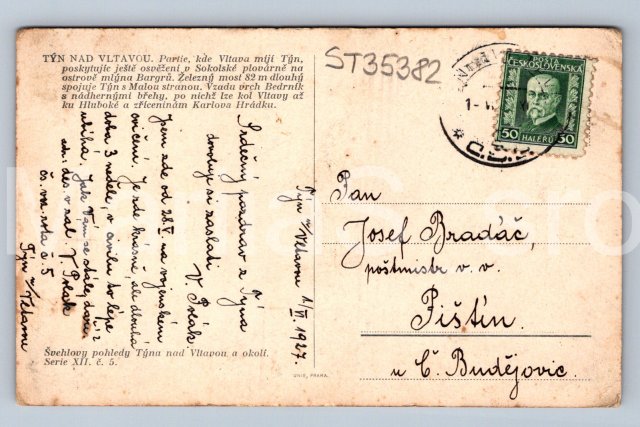 TÝN NAD VLTAVOU. Partie, kde Vltava míjí Týn,
poskytujíc ještě osvěžení v Sokolské plovárně na
ostrově mlýna Bargrů. Železný most 82 m dlouhý
spojuje Týn s Malou stranou. Vzadu vrch Bedrník
s nádhernými břehy, po nichž lze kol Vltavy až
ku Hluboké a zříceninám Karlova Hrádku.
ST35382
ČESKOSLOVENSKÁ
50 HALÉŘŮ 50
Týn n/Vltavou 1/VI 1927.
Srdečný pozdrav z Týna
dovoluji si zaslati
V. Polák
Jsem zde od 28/V. na vojenském
cvičení. Je zde krásně, ale dlouhá
doba 3 neděle, v civilu to lépe
ubíhá. Jak Vám se stále daří?
V. Polák
čs. voj.
č. 5
Týn n/Vltavou
Pan
Josef Bradáč,
poštmistr v. v.
Pištín.
u Č. Budějovic.
Švehlovy pohledy Týna nad Vltavou a okolí.
Serie XII. č. 5.
UNIE, PRAHA.